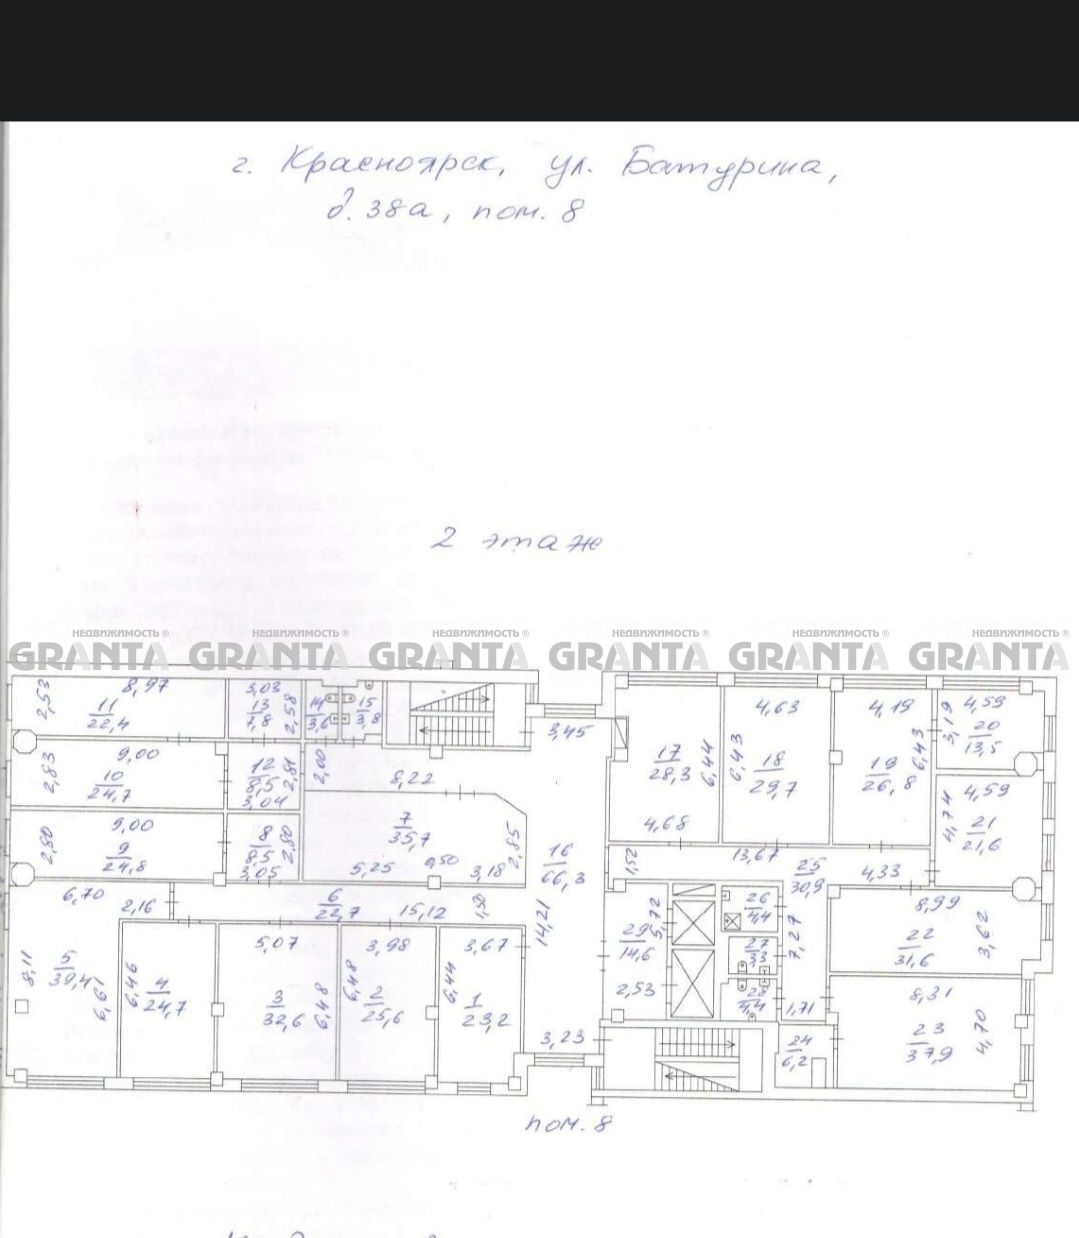 г. Красноярск, ул. Батурина,
д. 38а, пом. 8
2 этаж
НЕДВИЖИМОСТЬ ® НЕДВИЖИМОСТЬ ® НЕДВИЖИМОСТЬ ® НЕДВИЖИМОСТЬ ® НЕДВИЖИМОСТЬ ® НЕДВИЖИМОСТЬ ®
GRANTA GRANTA GRANTA GRANTA GRANTA GRANTA
2,53
8,97
11
22,4
3,03
13
7,8
2,58
14
3,6
15
3,8
3,45
17
28,3
6,44
4,68
4,63
6,43
18
29,7
4,19
19
26,8
6,43
4,59
3,19
20
13,5
9,00
2,83
10
24,7
12
8,5
2,81
3,04
2,00
8,22
4,59
4,74
21
21,6
9,00
2,80
9
24,8
8
8,5
2,80
3,05
7
35,7
5,25
0,50
3,18
2,85
16
66,3
14,21
1,52
13,67
25
30,9
4,33
6,70
2,16
6
22,7
15,12
1,50
5,72
29
14,6
2,53
26
4,4
27
3,3
28
4,4
7,27
1,71
8,99
22
31,6
3,62
8,11
5
39,4
6,61
6,46
4
24,7
5,07
3
32,6
6,48
3,98
6,48
2
25,6
3,67
6,44
1
23,2
3,23
24
6,2
8,31
23
37,9
4,70
пом. 8